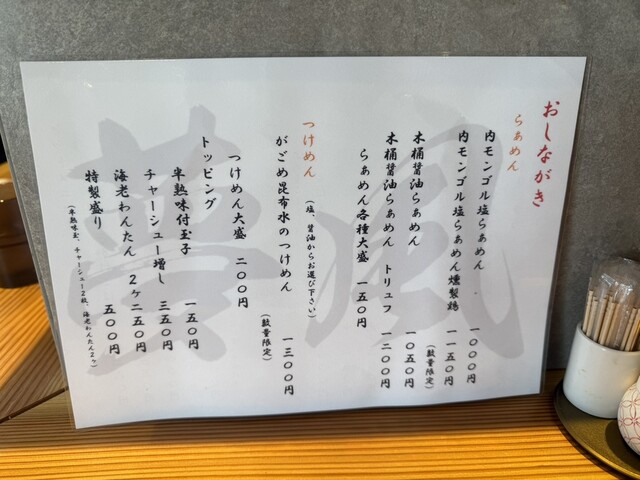 おしながき
らぁめん
内モンゴル塩らぁめん 一〇〇〇円
内モンゴル塩らぁめん燻製鶏 一一五〇円
(数量限定)
木桶醤油らぁめん 一〇五〇円
木桶醤油らぁめん トリュフ 一二〇〇円
らぁめん各種大盛 一五〇円
つけめん
(塩、醤油からお選び下さい)
がごめ昆布水のつけめん 一三〇〇円
(数量限定)
つけめん大盛 二〇〇円
トッピング
半熟味付玉子 一五〇円
チャーシュー増し 三五〇円
海老わんたん 2ヶ二五〇円
特製盛り 五〇〇円
(半熟味玉、チャーシュー2枚、海老わんたん2ヶ)
風
夢